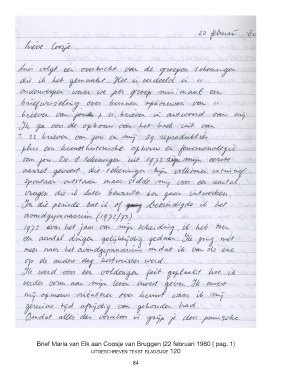 22 februari '80
Lieve Coosje
hier volgt een overzicht van de groepen tekeningen
die ik heb gemaakt. Het is verdeeld in 11
onderwerpen waar we per groep minimaal een
briefwisseling over kunnen opbouwen van 11
brieven van jou en 11 brieven in antwoord van mij
Ik ga van de opbouw van het boek uit van
22 brieven van jou en mij 29 reproducties
plus een kunsthistorische opbouw en fenomenologie
van jou. De 8 tekeningen uit 1973 zijn mijn eerste
aanzet geweest, die tekeningen zijn volkomen
spontaan ontstaan maar stelde mij voor een aantal
vragen die ik later bewuster ben gaan uitwerken.
In die periode zat ik of beeindigde ik het
avondgymnasium (1972/73)
1973 was het jaar van mijn scheiding, ik heb toen
een aantal dingen gelijktijdig gedaan. Ik ging niet
meer naar het avondgymnasium omdat ik van de ene
op de andere dag kostwinner werd.
Ik werd voor een voldongen feit geplaatst hoe ik
verder vorm aan mijn leven moest geven. Ik moest
mij opnieuw orienteren over kunst waar ik mij
geruime tijd afzijdig van gehouden had.
Omdat alles den vormloos is grijp je door panische
Brief Maria van Elk aan Coosje van Bruggen (22 februari 1980 | pag. 1)
UITGESCHREVEN TEKST BLADZIJDE 120
64